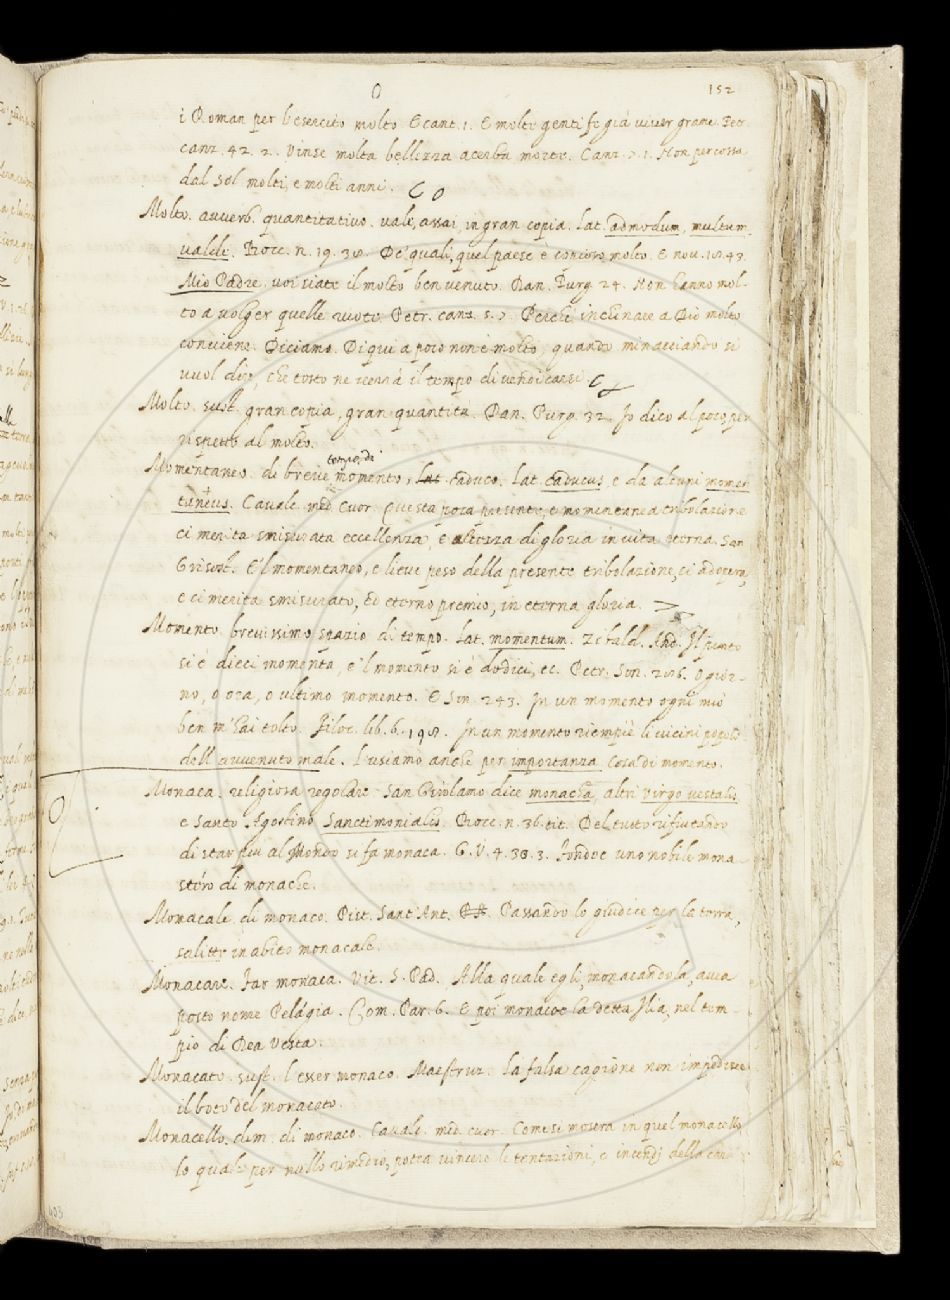 O 152
i Roman per l'esercito molto. E cant. 1. E molte genti fe già viver grame. Petr.
canz. 42. 2. Vinse molta bellezza acerba morte. Canz. 1. Non percossa
dal Sol molti, e molti anni.
Molto. avverb. quantitativo. vale, assai, in gran copia. Lat. admodum, multum,
valde. Bocc. n. 19. 38. De' quali, quel paese è copioso molto. E nov. 18. 43.
Mio Padre, voi siate il molto ben venuto. Dan. Purg. 24. Non hanno mol-
to a volger quelle ruote. Petr. canz. 5. Perchè inchinare a Dio molto
conviene. Diciamo. Di qui a poco non è molto, quando minacciando si
vuol dire, che tosto ne verrà il tempo di vendicarsi
Molto. sust. gran copia, gran quantità. Dan. Purg. 32. Io dico al poco, per
rispetto al molto.
tempo, di
Momentaneo. di breve momento, Lat. caduco. Lat. caducus, e da alcuni momen
taneus. Cavalc. med. cuor. Questa poca presente, e momentanea tribolazione
ci merita smisurata eccellenza, e altezza di gloria in vita eterna. San
Grisost. E'l momentaneo, e lieve peso della presente tribolazione, ci adopera,
e ci merita smisurato, ed eterno premio, in eterna gloria.
Momento. brevissimo spazio di tempo. Lat. momentum. Zibald. And. Il punto
si è dieci momenta, e'l momento si è dodici, ec. Petr. Son. 286. O gior-
no, o ora, o ultimo momento. E Son. 243. In un momento ogni mio
ben m'hai tolto. Filoc. lib. 6. 198. In un momento riempiè li vicini popoli
dell'avvenuto male. L'usiamo anche per importanza. Cosa di momento.
Monaca. religiosa regolare. San Girolamo dice monacha, altri virgo vestalis,
e Santo Agostino Sanctimonialis. Bocc. n. 36. tit. Del tutto rifiutando
di star più al Mondo si fa monaca. G. V. 4. 38. 3. Fondoe uno nobile mona-
stero di monache.
Monacale. di monaco. Pist. Sant'Ant. Passando lo giudice per la terra,
salitte in abito monacale.
Monacare. Far monaca. Vit. S. Pad. Alla quale egli, monacandola, avea
posto nome Pelàgia. Com. Par. 6. E poi monacoe la detta Ilia, nel tem-
pio di Dea Vesta.
Monacato. sust. l'esser monaco. Maestruz. La falsa cagione non impedisce
il boto del monacato.
Monacello. dim. di monaco. Cavalc. med. cuor. Come si mostra in quel monacello
lo quale per nullo rimedio, potea vincere le tentazioni, e incendj della